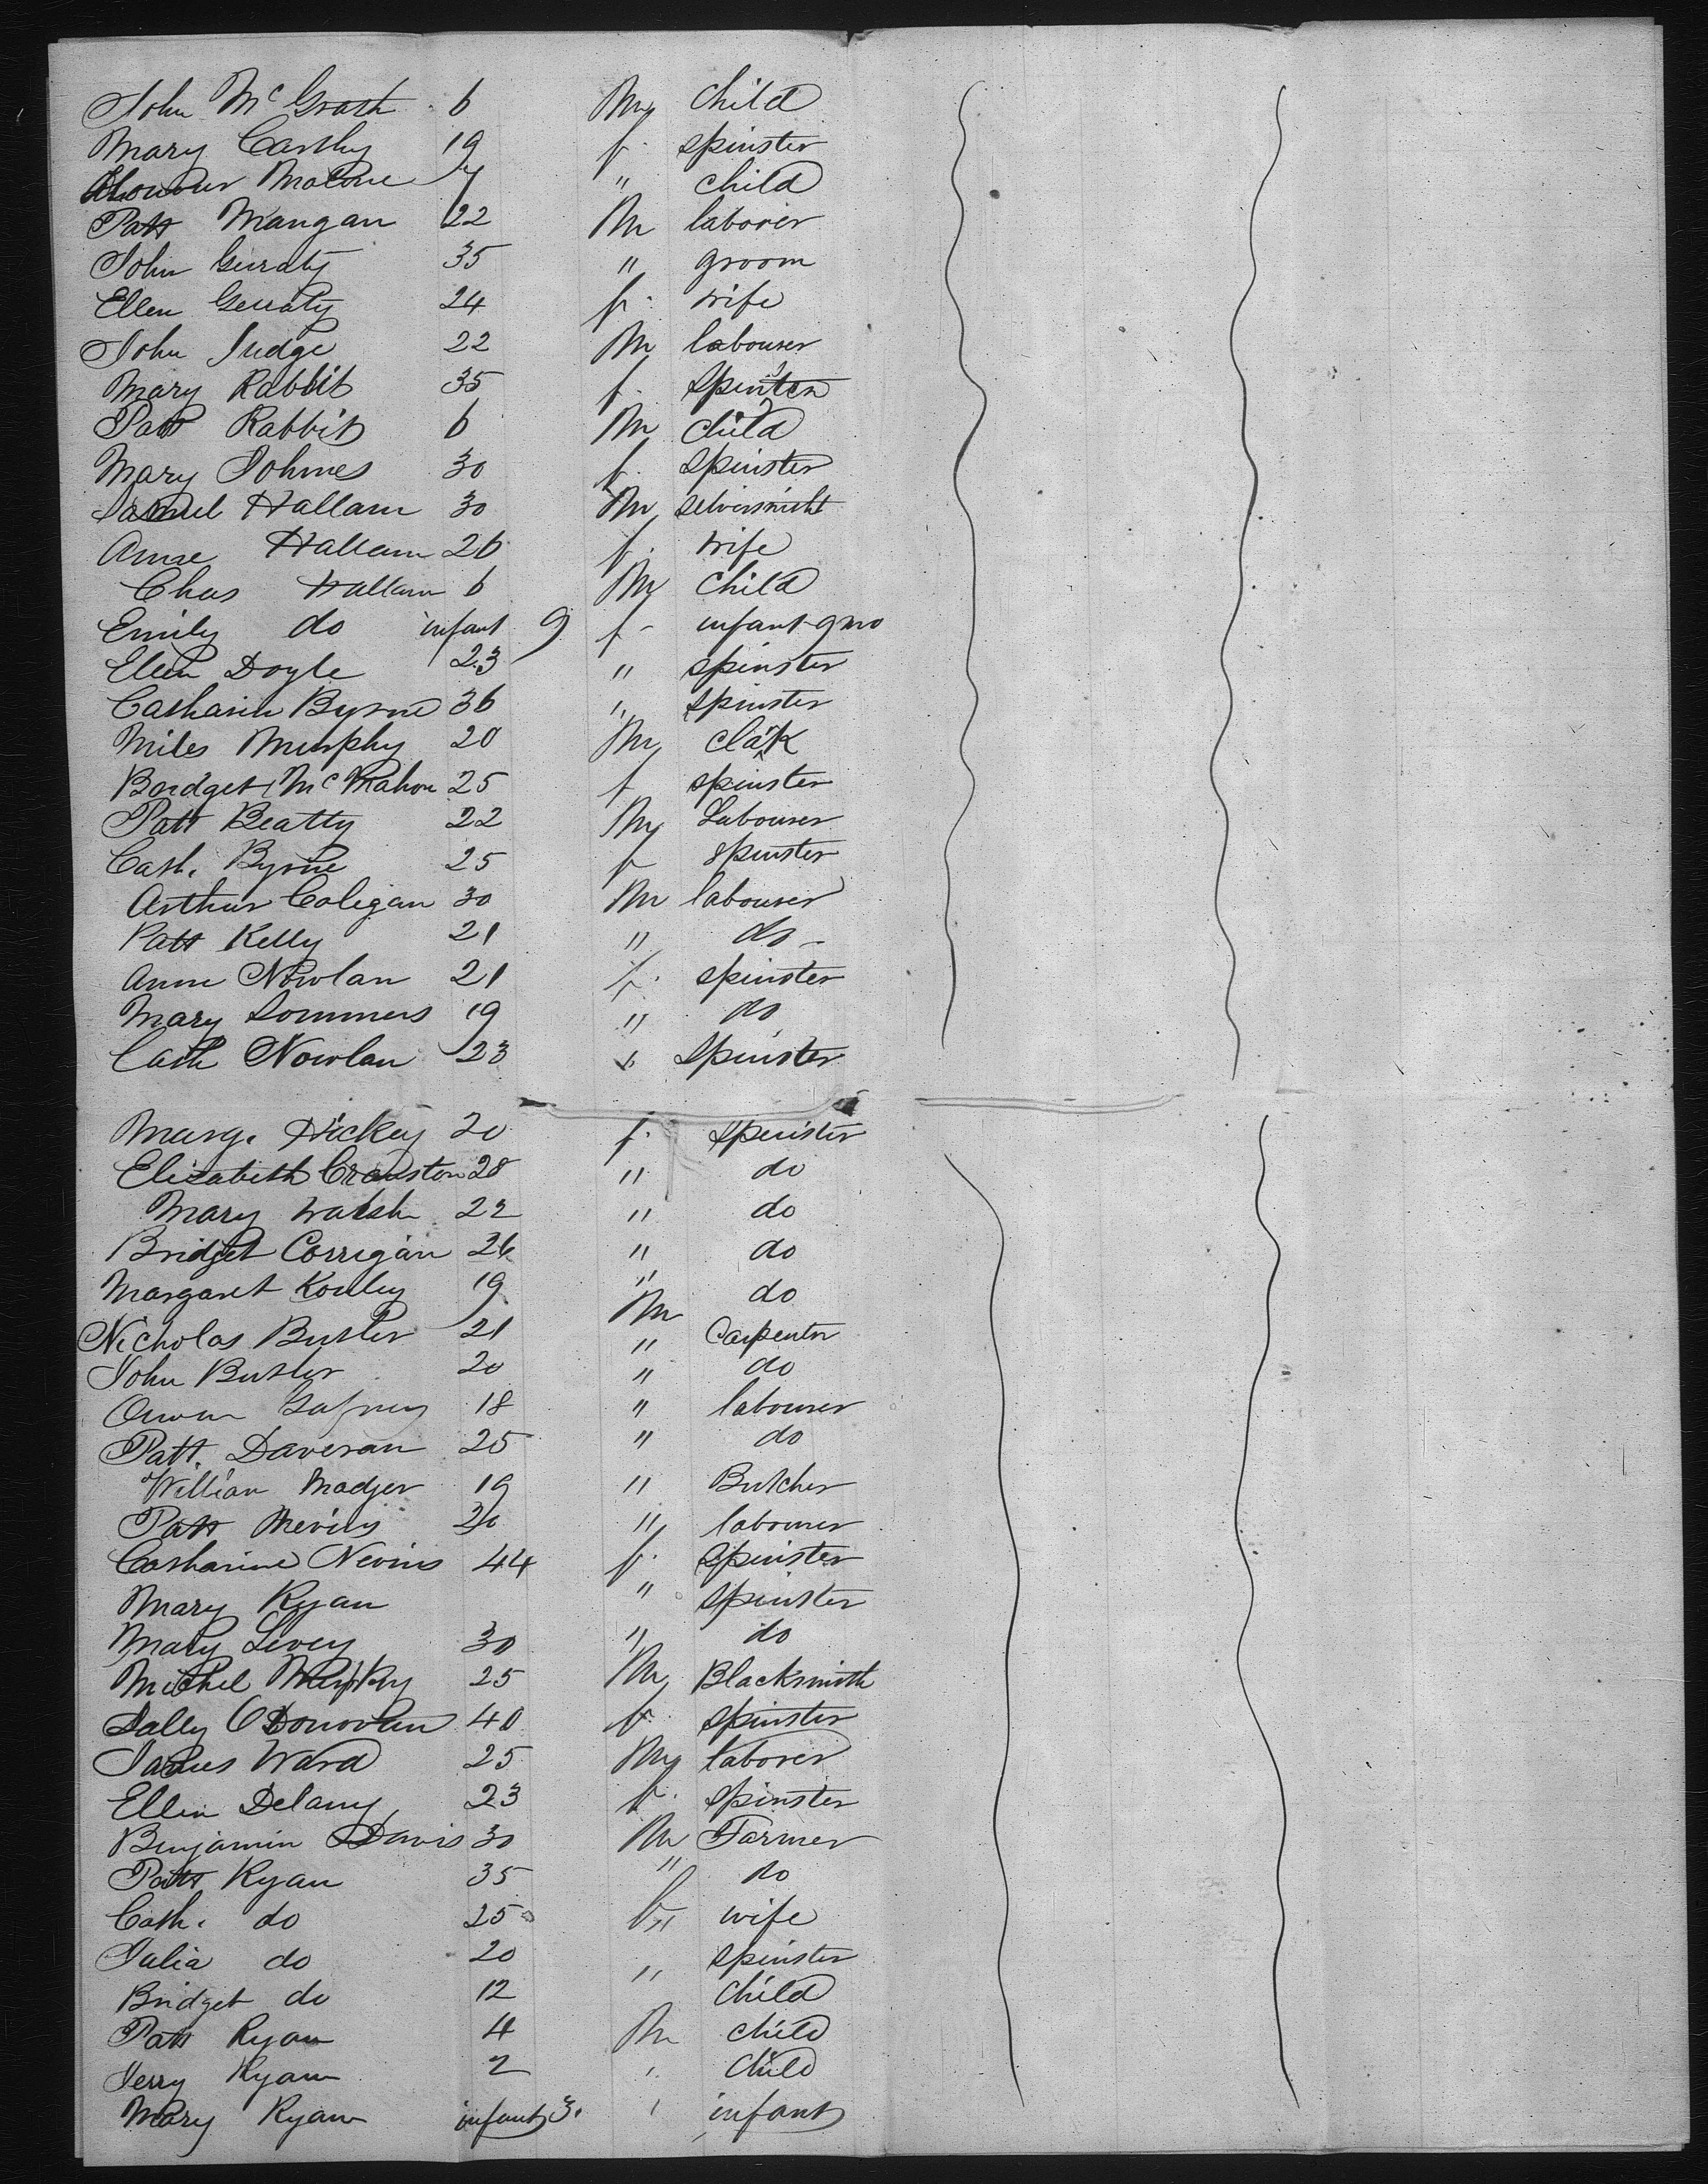 John McGrath 6 M child
Mary Carthy 19 f. spinster
Honour Malone 7 " child
Patt Mangan 22 M laborer
John Gerraty 35 " groom
Ellen Gerraty 24 f. wife
John Judge 22 M labourer
Mary Rabbit 35 f. spinster
Patt Rabbit 6 M child
Mary Johnes 30 f. spinster
Samuel Hallam 30 M
Anne Hallam 26 f. wife
Chas Hallam 6 M child
Emily do infant 9 f - infant 9 mo
Ellen Doyle 23 " spinster
Catharin Byrne 36 " spinster
Miles Murphy 20 M clark
Bordget McMahon 25 f spinster
Patt Beatty 22 M Labourer
Cath. Byrne 25 f spinster
Arthur Coligan 30 M labourer
Patt Kelly 21 " do -
Anne Nowlan 21 f. spinster
Mary Sommers 19 " do
Cath Nowlan 23 " spinster
Marg. Hickey 20 f. spinster
Elizabeth Cranston 28 " do
Mary Walsh 22 " do
Bridget Corrigan 26 " do
Margaret Konley 19 " do
Nicholas Butler 21 M " Carpenter
John Butler 20 " do
Owen Gafney 18 " labourer
Patt. Daveran 25 " do
William Madjer 19 " Butcher
Patt 20 " labourer
Catharine Nevins 44 f. spinster
Mary Ryan " spinster
Mary Livey 30 " do
Michel Murphy 25 M Blacksmith
Sally O Donovan 40 f. spinster
James Ward 25 M laborer
Ellen Delany 23 f. spinster
Benjamin Davis 30 M Farmer
Patt Ryan 35 " do
Cath. do 25 f " wife
Julia do 20 " spinster
Bridget do 12 child
Patt Ryan 4 M child
Jerry Ryan 2 " child
Mary Ryan infant 3. " infant